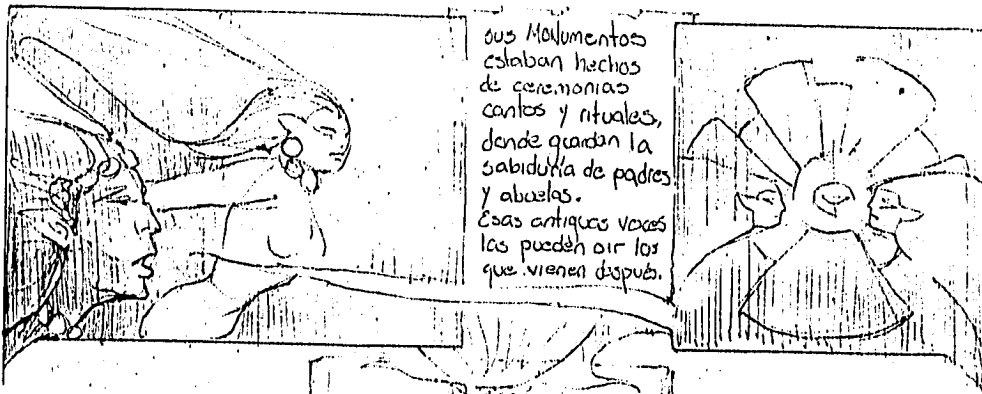 sus Monumentos
estaban hechos
de ceremonias
cantos y rituales,
donde guardan la
sabiduría de padres
y abuelas.
Esas antiguas voces
las pueden oir los
que vienen después.